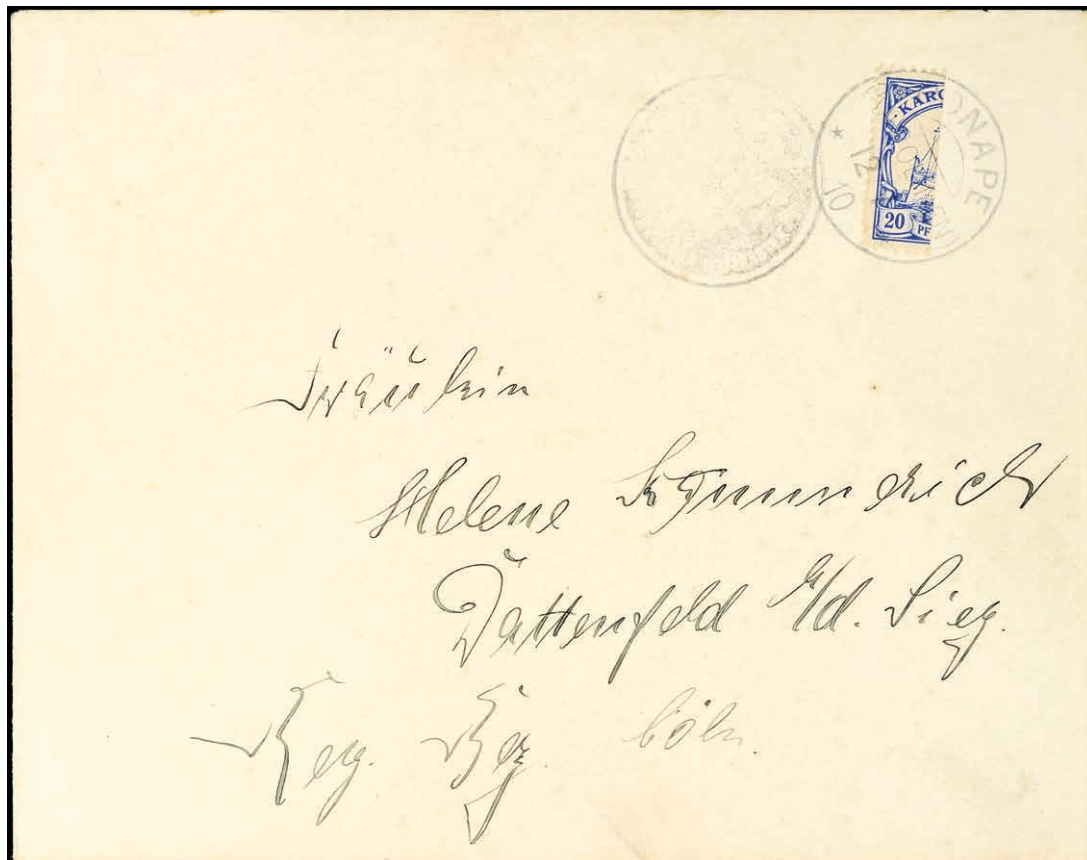 KARO
20 PF
PONAPE
12
10
Fräulein
Helene
Dattenfeld a/d. Sieg.
Reg. Bez. Cöln.